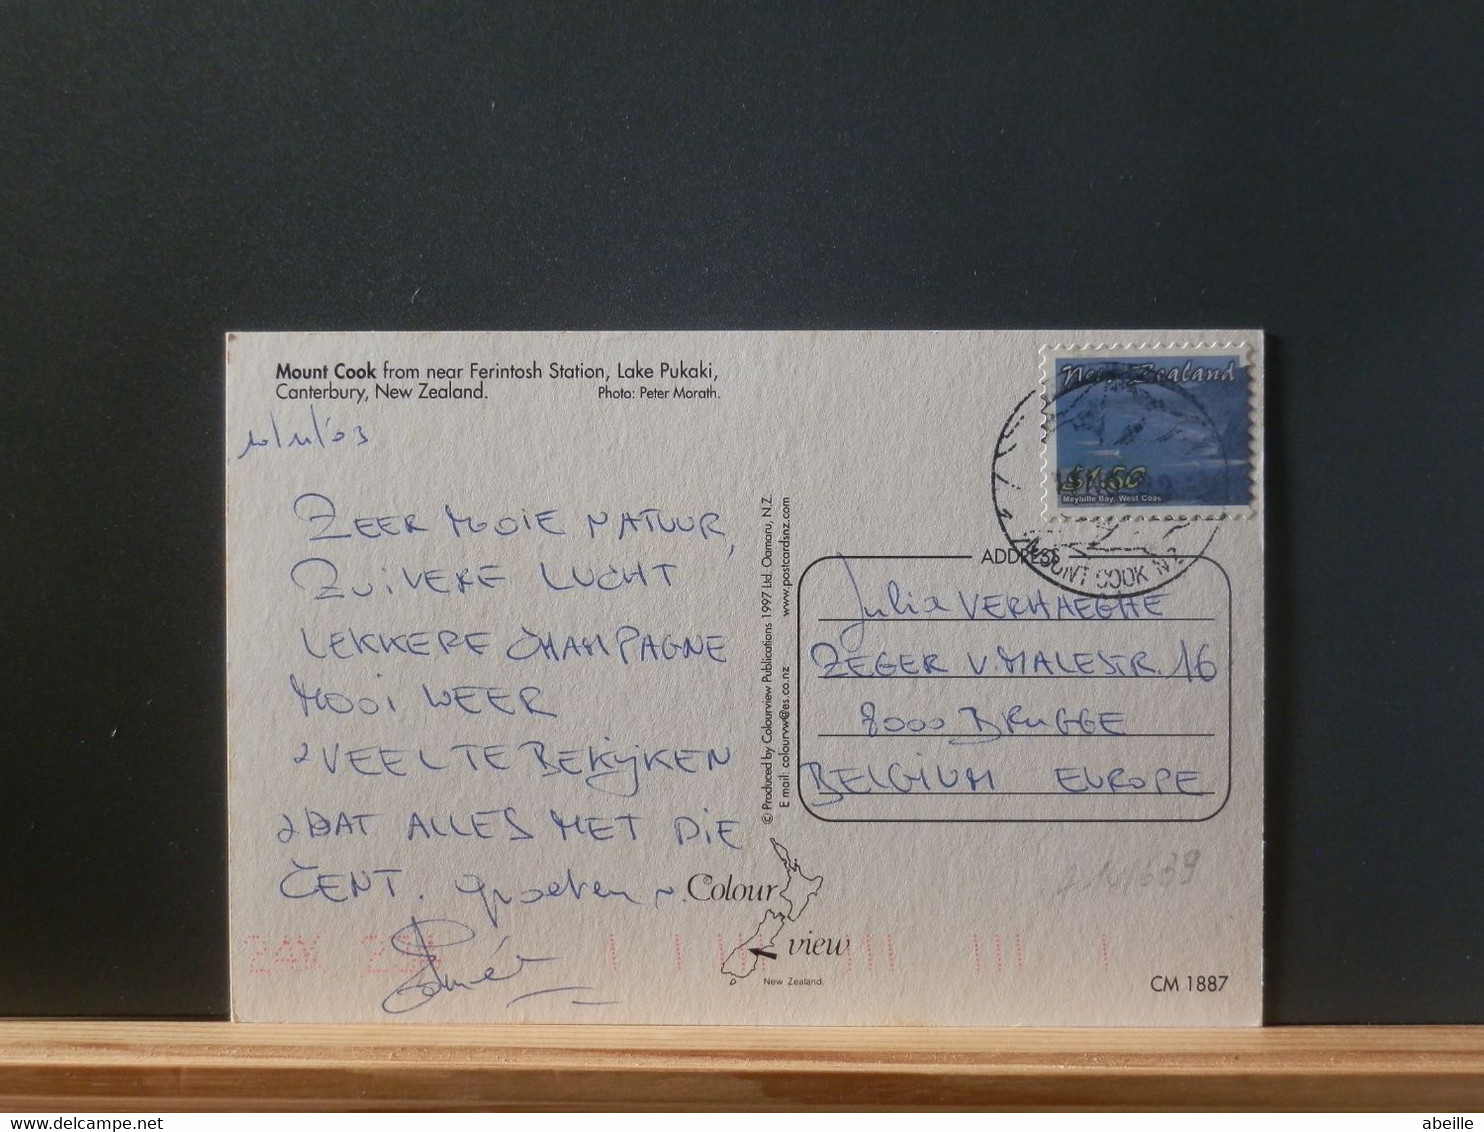 Mount Cook from near Ferintosh Station, Lake Pukaki,
Canterbury, New Zealand. Photo: Peter Morath.
10/11/03
ZEER MOOIE NATUUR,
ZUIVERE LUCHT
LEKKERE CHAMPAGNE
MOOI WEER
VEEL TE BEKIJKEN
DAT ALLES MET DIE
CENT. groeten
© Produced by Colourview Publications 1997 Ltd. Oamaru, N.Z.
E mail: colourvw@es.co.nz www.postcardsnz.com
New Zealand
$1.50
Meybille Bay, West Coas
MOUNT COOK N.Z.
ADDRESS
Julia VERHAEGHE
ZEGER V. MALESTR. 16
8000 BRUGGE
BELGIUM EUROPE
Colour
view
New Zealand.
24X
CM 1887
abeille